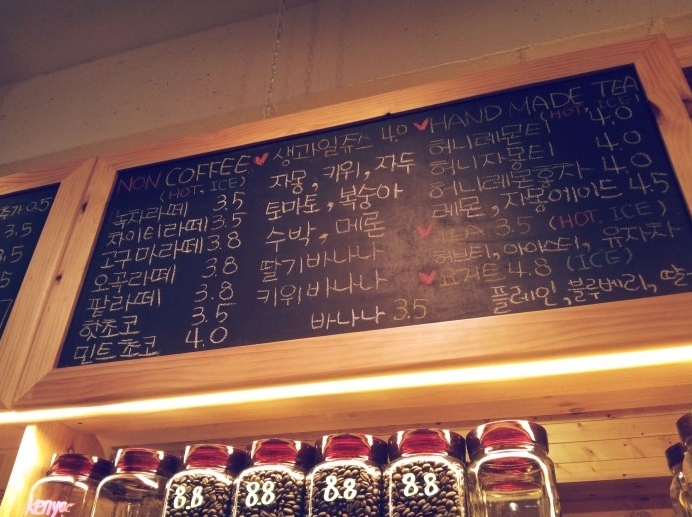 추가 0.5
3.5
3.5
NON COFFEE
(HOT, ICE)
녹차라떼 3.5
차이티라떼 3.5
고구마라떼 3.8
오곡라떼 3.8
팥라떼 3.8
핫초코 3.5
민트초코 4.0
생과일주스 4.0
자몽, 키위, 자두
토마토, 복숭아
수박, 메론
딸기바나나
키위바나나
바나나 3.5
HAND MADE TEA
(HOT, ICE)
허니레몬티 4.0
허니자몽티 4.0
허니레몬유자 4.0
레몬, 자몽에이드 4.5
TEA 3.5 (HOT, ICE)
허브티, 아이스티, 유자차
요거트 4.8 (ICE)
플레인, 블루베리, 딸
kenya
8.8
8.8
8.8
8.8